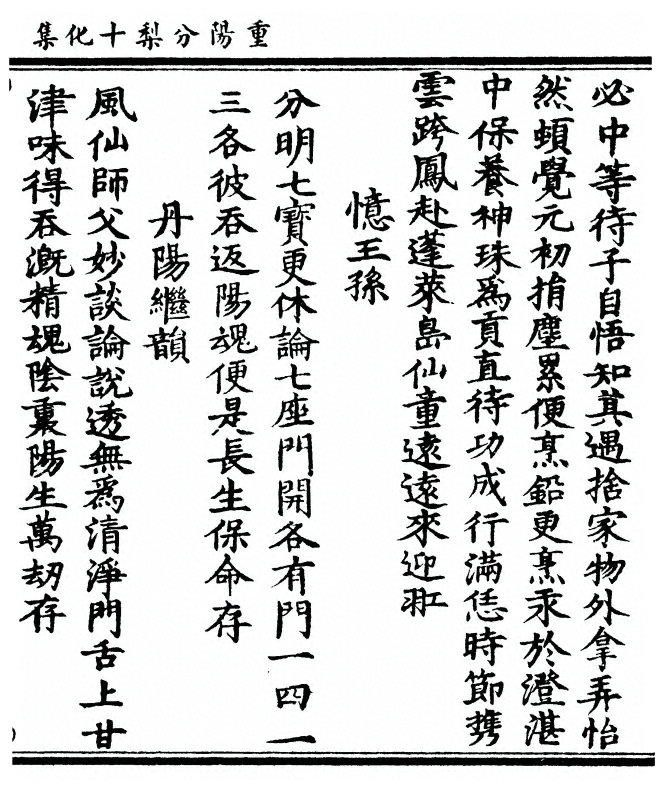 重陽分梨十化集
必中等待子自悟知其遇捨家物外拿弄怡
然頓覺元初捎塵累便烹鉛更烹汞於澄湛
中保養神珠爲貢直待功成行滿恁時節攜
雲跨鳳赴蓬萊島仙童遠遠來迎䢼
憶王孫
分明七寶更休論七座門開各有門一四一
三各彼吞返陽魂便是長生保命存
丹陽繼韻
風仙師父妙談論說透無爲清淨門舌上甘
津味得吞溉精魂陰裏陽生萬劫存